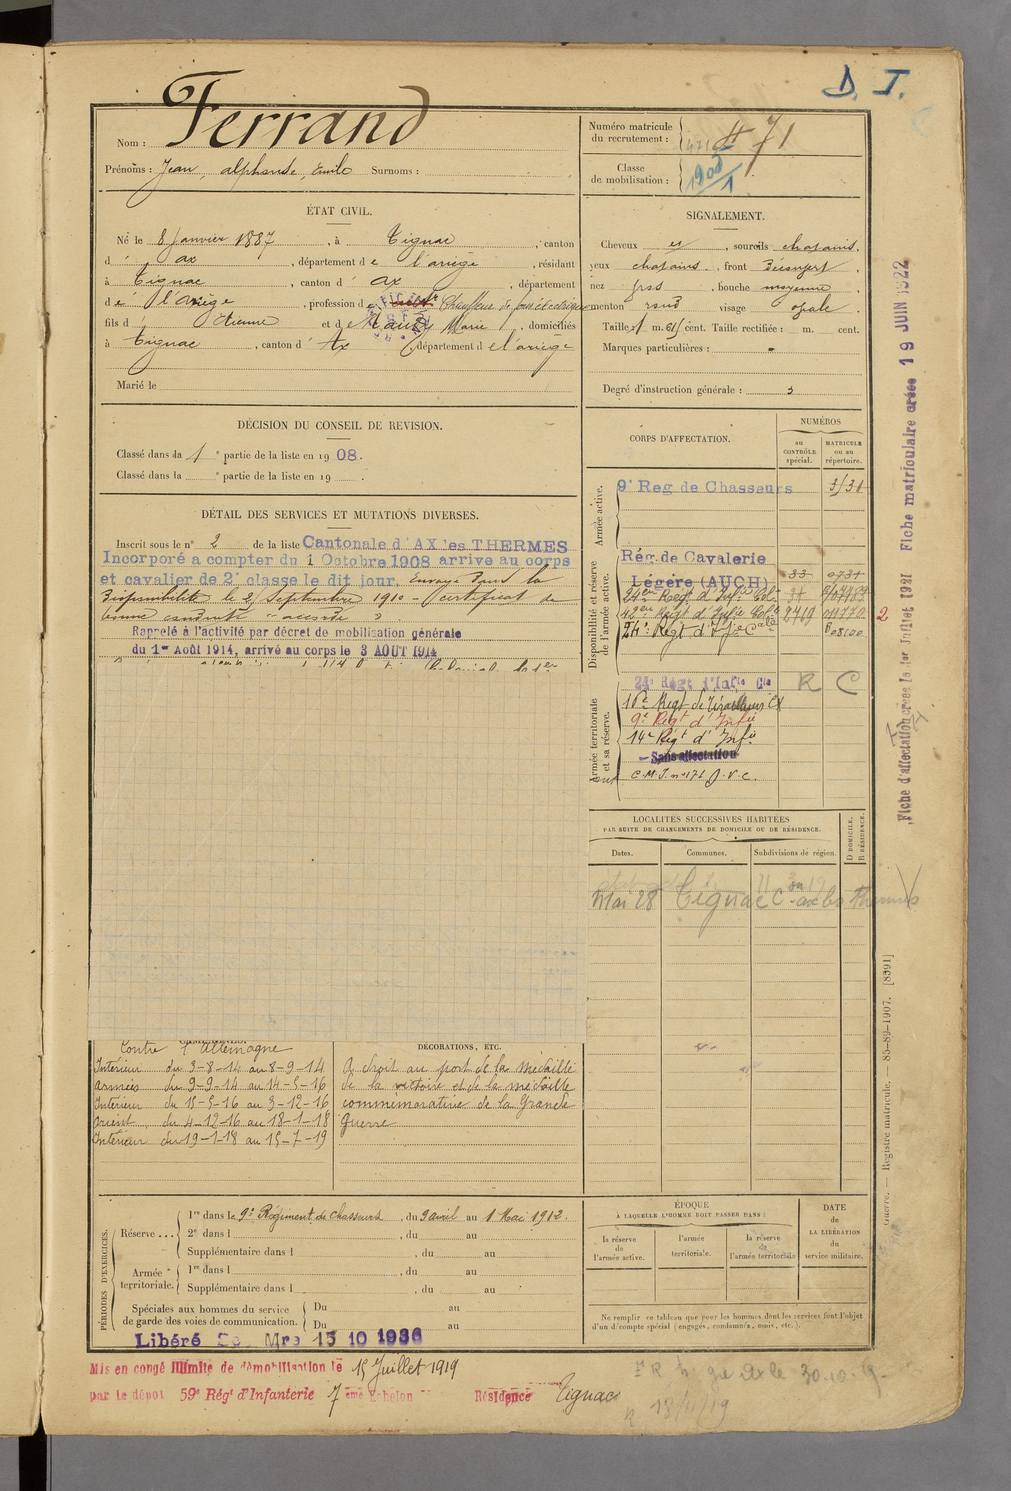 D. I.
Nom : Ferrand
Prénoms : Jean, alphonse, Emile Surnoms :
Numéro matricule du recrutement : 471
Classe de mobilisation : 1905/1
ÉTAT CIVIL.
Né le 8 Janvier 1887, à Tignac, canton
d' ax, département de l'ariège, résidant
à Tignac, canton d' ax, département
de l'ariège, profession de Chauffeur de four électrique
fils d' Etienne et de Marie, domiciliés
à Tignac, canton d' Ax, département de l'ariège
Marié le
SIGNALEMENT.
Cheveux et, sourcils chatains,
yeux chatains, front
nez gros, bouche moyenne,
menton rond visage ovale.
Taille 1 m. 61 cent. Taille rectifiée : m. cent.
Marques particulières :
Degré d'instruction générale : 3
DÉCISION DU CONSEIL DE REVISION.
Classé dans la 1e partie de la liste en 1908.
Classé dans la e partie de la liste en 19 .
DÉTAIL DES SERVICES ET MUTATIONS DIVERSES.
Inscrit sous le n° 2 de la liste Cantonale d'AX les THERMES
Incorporé a compter du 1 Octobre 1908 arrivé au corps
et cavalier de 2e classe le dit jour. Envoyé dans la
Disponibilité le 2 Septembre 1910 - certificat de
bonne conduite "accordé".
Rappelé à l'activité par décret de mobilisation générale
du 1er Août 1914, arrivé au corps le 3 AOUT 1914
CORPS D'AFFECTATION.
NUMÉROS
AU CONTRÔLE spécial.
MATRICULE ou au répertoire.
Armée active.
9e Reg de Chasseurs
Disponibilité et réserve de l'armée active.
Rég. de Cavalerie
Légère (AUCH) 33 0731
24e Regt d'Infie Cole
42e Regt d'Infie Cole 8719
24e Regt d'Ie Cale
2
Armée territoriale et sa réserve.
24e Régt d'Infie Cle R C
16e Regt de Tirailleurs
9e Regt d'Infie
14e Regt d'Infie
Sans affectation
C.M.I. n° 171
LOCALITÉS SUCCESSIVES HABITÉES
PAR SUITE DE CHANGEMENTS DE DOMICILE OU DE RÉSIDENCE.
Dates.
Communes.
Subdivisions de région.
D DOMICILE.
R RÉSIDENCE.
Mai 28 Tignac Con ax les Thermes
Contre l'Allemagne
Intérieur du 3-8-14 au 8-9-14
Armées du 9-9-14 au 14-5-16
Intérieur du 15-5-16 au 3-12-16
Orient du 4-12-16 au 18-1-18
Intérieur du 19-1-18 au 15-7-19
DÉCORATIONS, ETC.
A droit au port de la médaille
de la victoire et de la médaille
commémorative de la Grande
Guerre
PÉRIODES D'EXERCICES.
Réserve ...
1re dans le 9e Régiment de chasseurs, du 9 avril au 1 Mai 1912.
2e dans l , du au
Supplémentaire dans l , du au
Armée territoriale.
1re dans l , du au
Supplémentaire dans l , du au
Spéciales aux hommes du service de garde des voies de communication.
Du au
Du au
Libéré 15 10 1936
ÉPOQUE
À LAQUELLE L'HOMME DOIT PASSER DANS :
la réserve de l'armée active.
l'armée territoriale.
la réserve de l'armée territoriale
DATE de LA LIBÉRATION du service militaire.
Ne remplir ce tableau que pour les hommes dont les services font l'objet
d'un décompte spécial (engagés, condamnés, omis, etc.).
Mis en congé illimité de démobilisation le 15 Juillet 1919
par le dépôt 59e Régt d'Infanterie 7 ème Echelon Résidence Tignac
30.10.19
18/11/19
Fiche d'affectation créée le 1er Juillet 1921 Fiche matriculaire créée 19 JUIN 1922
Guerre. — Registre matricule. — 85-89-1907. [8391]